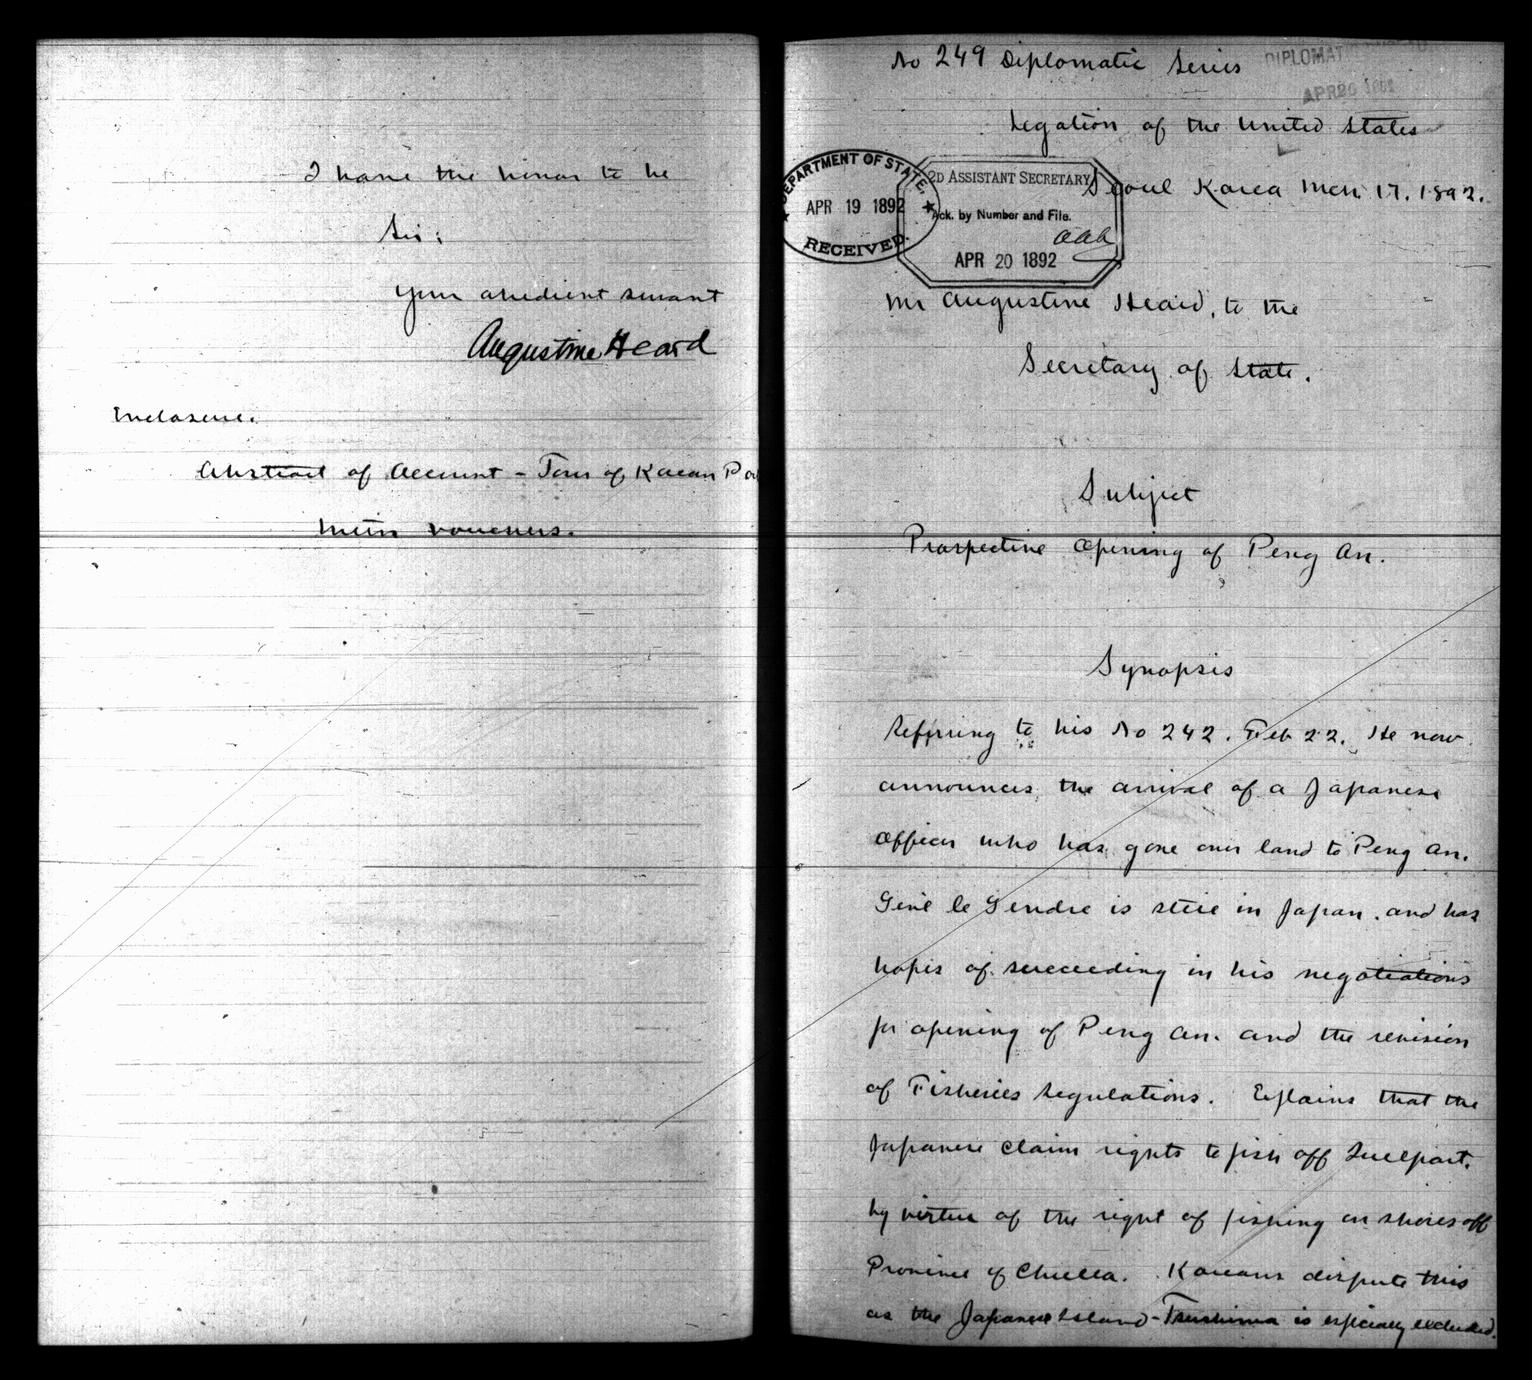 I have the honor to be
Sir:
Your obedient servant
Augustine Heard
Inclosure.
Abstract of Account - Tour of Korean Po
with vouchers.
No 249 Diplomatic Series
DIPLOMAT
APR 20 1892
Legation of the United States
Seoul Korea Mch 17. 1892.
DEPARTMENT OF STATE,
APR 19 1892
RECEIVED.
2D ASSISTANT SECRETARY
Ack. by Number and File.
APR 20 1892
Mr Augustine Heard, to the
Secretary of State.
Subject
Prospective Opening of Peng An.
Synopsis
Referring to his No 242. Feb 22. He now
announces the arrival of a Japanese
Officer who has gone over land to Peng An.
Genl le Gendre is still in Japan. and has
hopes of succeeding in his negotiations
for opening of Peng An. and the revision
of Fisheries Regulations. Explains that the
Japanese claim rights to fish off Quelpart.
by virtue of the right of fishing on shores off
Province of Chulla. Koreans dispute this
as the Japanese Island - Tsushima is especially excluded.